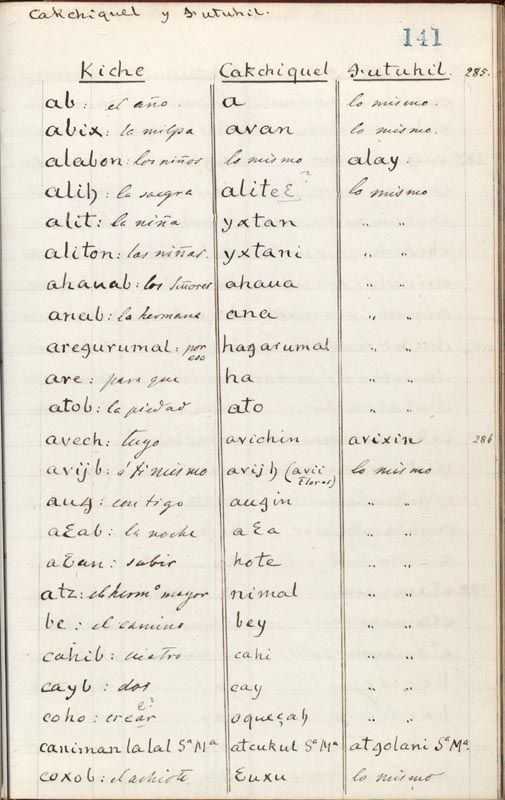 Cakchiquel y Sutuhil.
141
Kiche Cakchiquel Sutuhil. 285.
ab: el año. a lo mismo.
abix: la milpa avan lo mismo.
alabon: los niños lo mismo alay.
alih: la suegra aliteɛ? lo mismo
alit: la niña yxtan „ „
aliton: las niñas. yxtani „ „
ahauab: los Señores ahaua „ „
anab: la hermana ana „ „
aregurumal: por eso hagarumal „ „
are: para que ha „ „
atob: la piedad ato „ „
avech: tuyo avichin avixin 286
avijb: á ti mismo avijh (avii Flores) lo mismo
aug: contigo augin „ „
aɛab: la noche aɛa „ „
aɛan: subir hote „ „
atz: el hermº mayor nimal „ „
be: el camino bey „ „
cahib: cuatro cahi „ „
cayb: dos cay „ „
coho: crear e? oqueçah „ „
canimanlalal Sª Mª atcukul Sª Mª atgolani Sª Mª
coxob: el achiote ɛuxu lo mismo